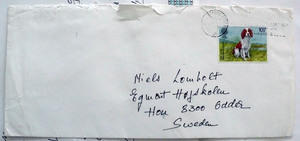 Niels Lomholt
Egmont Højskolen
Hou 8300 Odder
Sweden